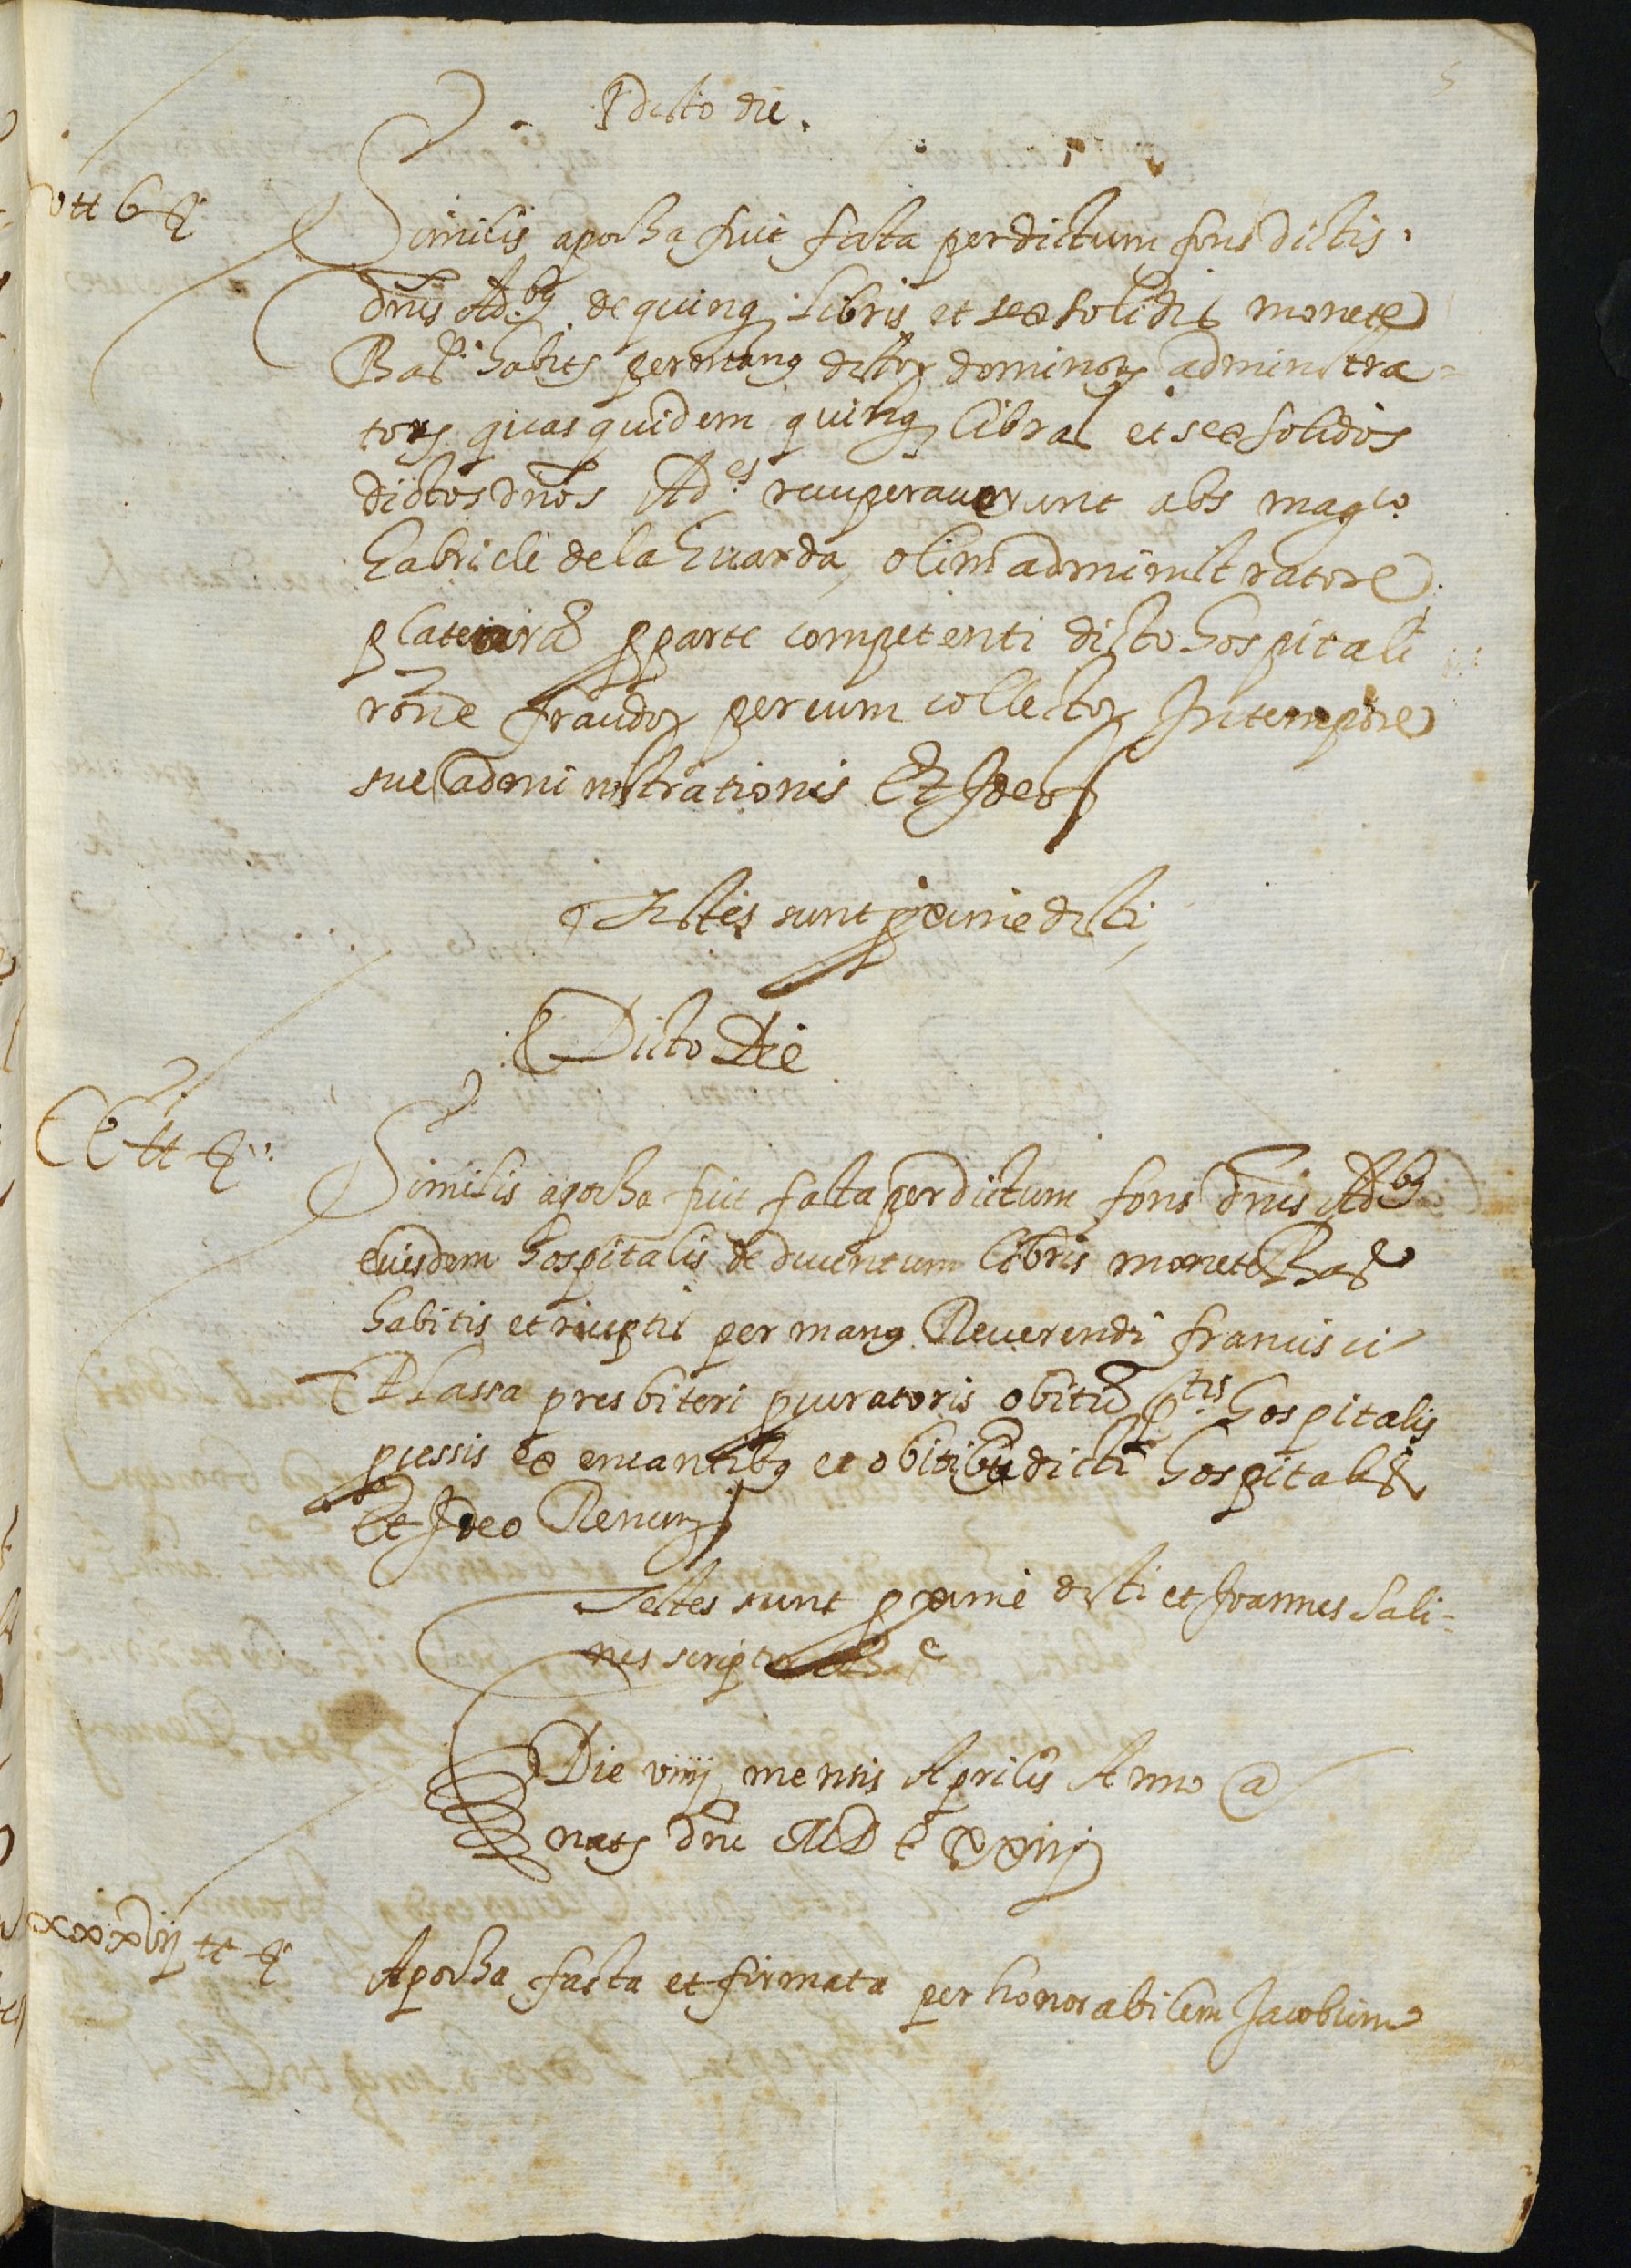 5
Dicto die.
v tt 6 ß
Similis apocha fuit facta per dictum fons dictis
dnis Ad.bus de quinq libris et sex solidis monete
Bar.e habitis per manus dictor dominor administra=
tor quas quidem quinq libras et sex solidos
dictos dnos Ad.es recuperaverunt abs mag.co
Gabriele de la Guarda, olim administratore
plateriarũ p parte competenti dicto hospitali
rone fraudor per eum collector In tempore
sue administrationis Et Ideo
Testes sunt pxime dicti
Dicto Die
CC tt ß
Similis apocha fuit facta per dictum fons dnis Ad.bus
euisdem hospitalis de ducentum libris monete Bar.e
habitis et receptis per manus Reverendi francisci
Plassa presbiteri pcuratoris obituũ p.tis hospitalis
pcessis ex encantibus et obitibus dicti hospitalis
Et Ideo Renunz
Testes sunt pxime dicti et Joannes Sali=
nes scriptor Bar.e
Die viiij mensis Aprilis Anno a
nats dni MDLxxiiij
xxxxvij tt ß
Apocha facta et firmata per honorabilem Jacobum